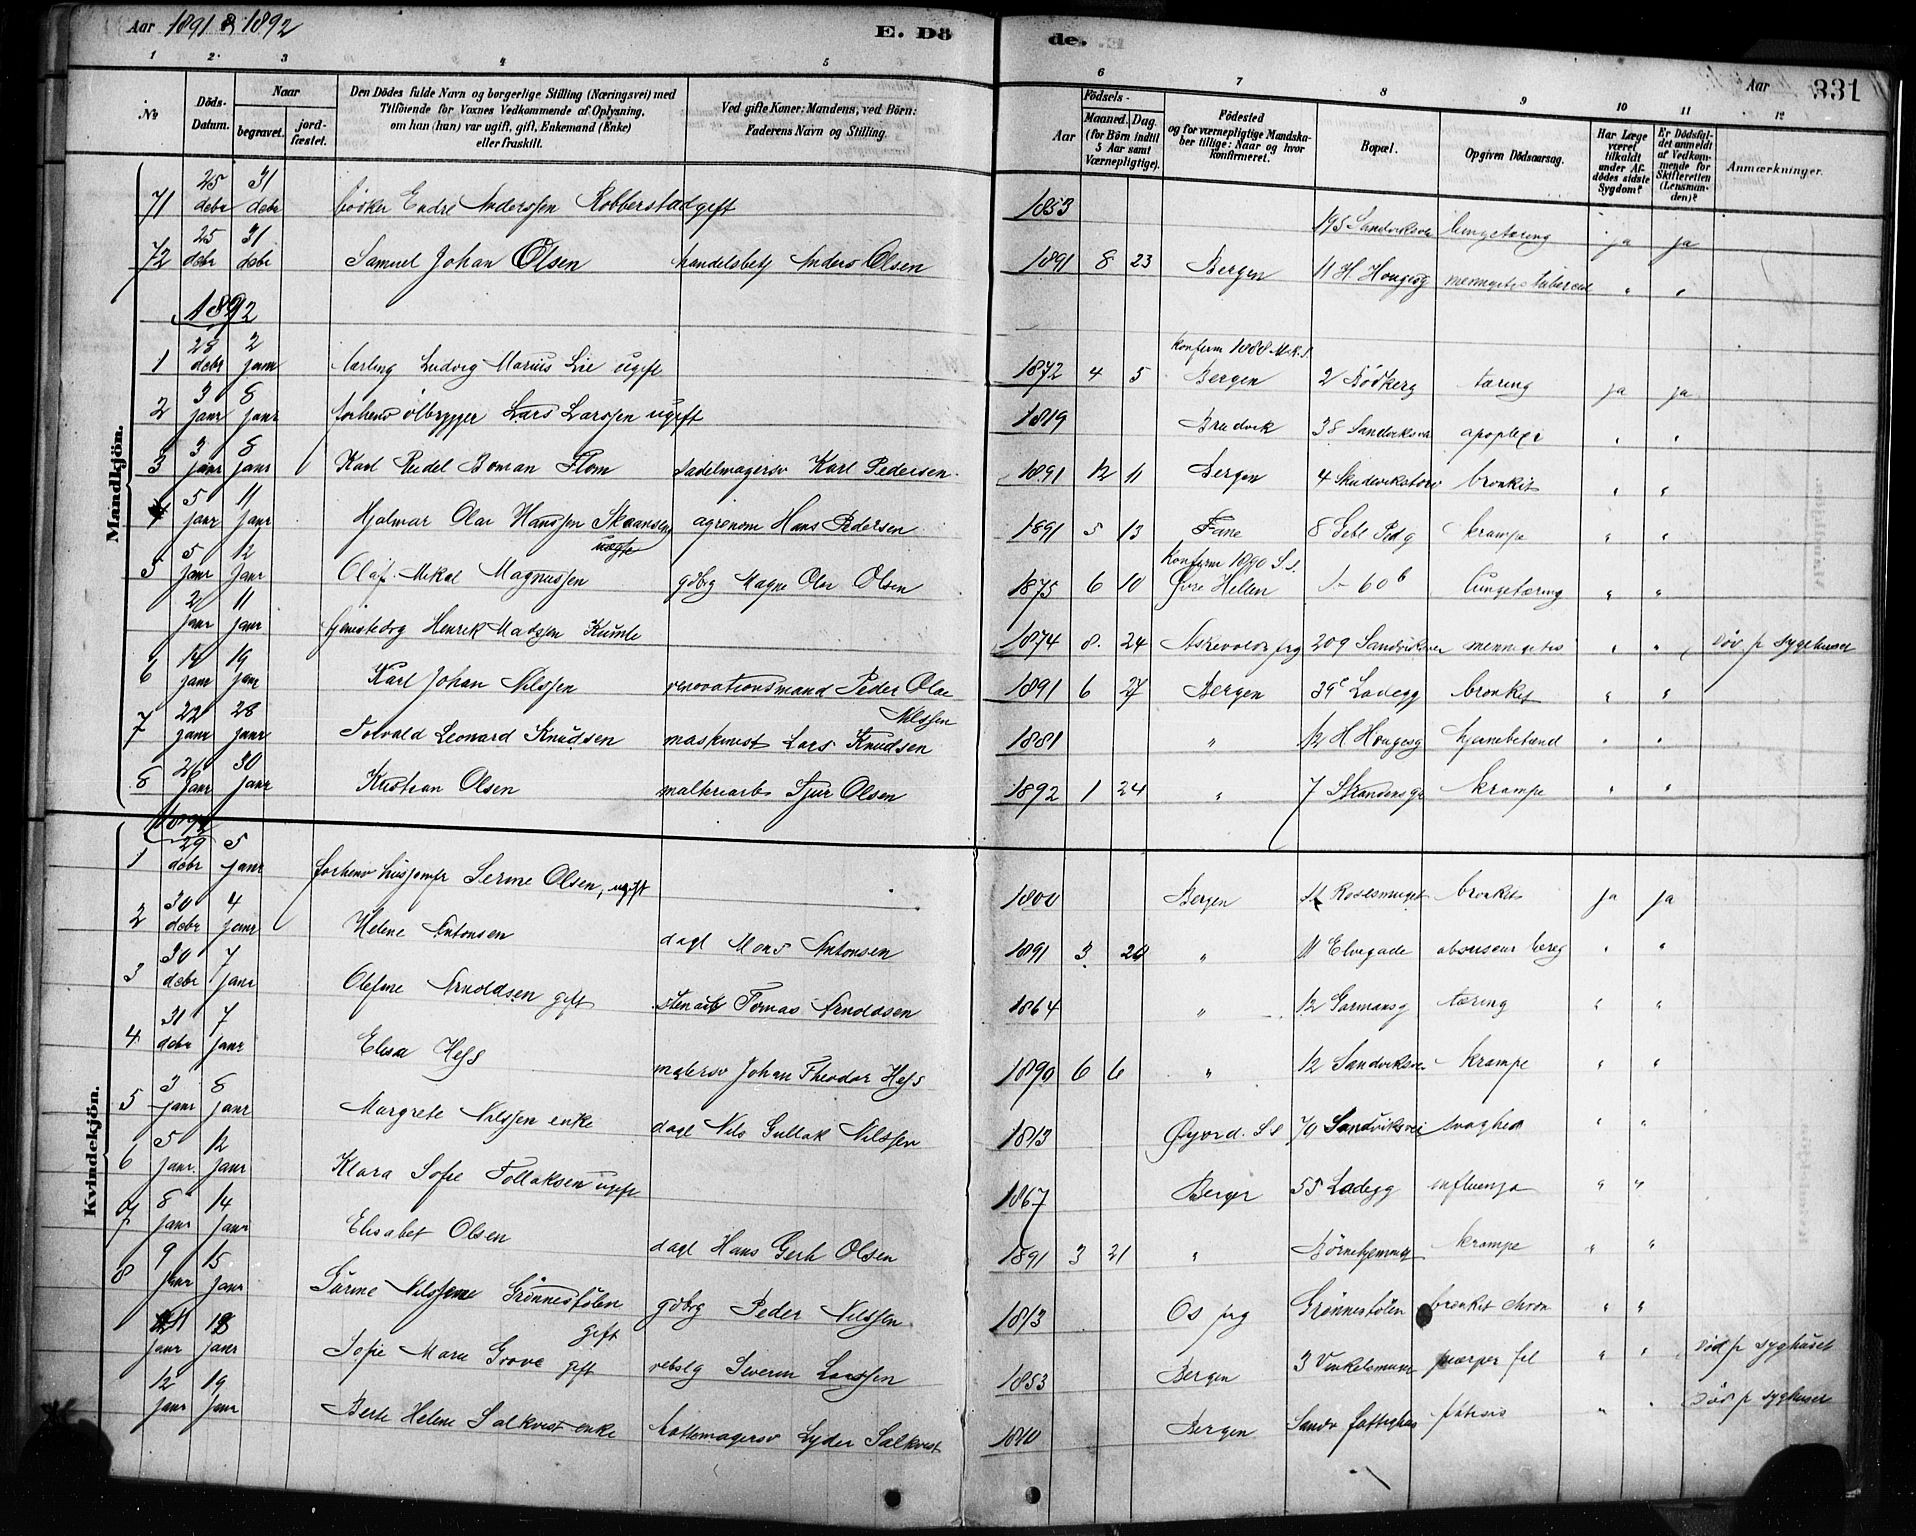 Aar 1891 & 1892
E. Dö
de.
Aar 331
1 2. 3 4 5 6 7 8 9 10 11 12
No
Döds-Datum.
Naar
begravet.
jord-fæstet.
Den Dödes fulde Navn og borgerlige Stilling (Næringsvei) med
Tilföiende for Voxnes Vedkommende af Oplysning,
om han (hun) var ugift, gift, Enkemand (Enke)
eller fraskilt.
Ved gifte Koner: Mandens, ved Börn:
Faderens Navn og Stilling.
Födsels-
Aar
Maaned. Dag.
(for Börn indtil
5 Aar samt
Værnepligtige).
Födested
og for værnepligtige Mandska-
ber tillige: Naar og hvor
konfirmeret.
Bopæl.
Opgiven Dödsaarsag.
Har Læge
været
tilkaldt
under Af-
dödes sidste
Sygdom?
Er Dödsfal-
det anmeldt
af Vedkom-
mende for
Skifteretten
(Lensman-
den)?
Anmærkninger.
Mandkjön.
71 25 debr 31 debr Endre Anderssen Robberstad gift 1853 195 Sandviksv lungetæring ja ja
72 25 debr 31 debr Samuel Johan Olsen handelsbetj Anders Olsen 1891 8 23 Bergen 11 H. Hougesg " "
1892
1 28 debr 2 janr Ludvig Marius Lie ugift 1872 4 5 konfirm 1888 Bergen 2 tæring ja ja
2 3 janr 8 janr forhenv ølbrygger Lars Larssen ugift 1819 Bruvik 38 Sandviksv apoplexi " "
3 3 janr 8 janr Karl Boman Flom sadelmagersv Karl Pedersen 1891 12 11 Bergen 4 bronkit " "
4 5 janr 11 janr Hjalmar Olai Hanssen Skaansen agronom Hans Pedersen 1891 5 13 Fane 8 krampe " "
uægte
5 5 janr 12 janr Olaf Mikal Magnussen gdbrg Magne Olai Olsen 1875 6 10 konfirm 1890 Øvre Hellen 60 b lungetæring " "
2 janr 11 janr Henrik Madsen 1874 8. 24 Askevolds prg 209 Sandviksvei " " Död p sygehuset
6 14 janr 19 janr Karl Johan Nilssen renovationsmand Peder Olai 1891 6 27 Bergen 39 c Ladegg bronkit " "
Nilssen
7 22 janr 28 janr Torvald Leonard Knudsen maskinist Lars Knudsen 1881 " 12 H Hougesg hjernebetænd " "
8 26 janr 30 janr Kristian Olsen malteriarb Sjur Olsen 1892 1 24 " 7 krampe " "
Kvindekjön.
1892
1 29 debr 5 janr forhenv husjomfr Serine Olsen, ugift 1800 Bergen bronkit ja ja
2 30 debr 4 janr Helene Antonsen dagl Mons Antonsen 1891 3 20 " 11 Elvegade " "
3 30 debr 7 janr Olefine Arnoldsen gift stenarb Tomas Arnoldsen 1864 " 12 Garmansg tæring " "
4 31 debr 7 janr Elisa Hess malersv Johan Theodor Hess 1890 6 6 " 12 Sandviksvei krampe " "
5 3 janr 8 janr Margrete Nilssen enke dagl Nils Gullak Nilssen 1813 70 Sandviksvei svaghed " "
6 5 janr. 12 janr Klara Sofie Tollaksen ugift 1867 Bergen 55 Ladegg influenza " "
7 8 janr 14 janr Elisabet Olsen dagl Hans Gerh Olsen 1891 3 21 " krampe " "
8 9 janr 15 janr Nilssene Grønnestølen gdbrg Peder Nilssen 1813 Os prg Grønnestølen bronkit chron " "
gift
11 janr 18 janr Sofie Marie Grove gift rebslg Severin Larssen 1853 Bergen 3 Vinkelsmuget " " Död p syghuset
12 janr 19 janr Berte Helene Salkvist enke hattemagersv Lyder Salkvist 1810 Bergen Sandv fattighus " " Död p syghuset